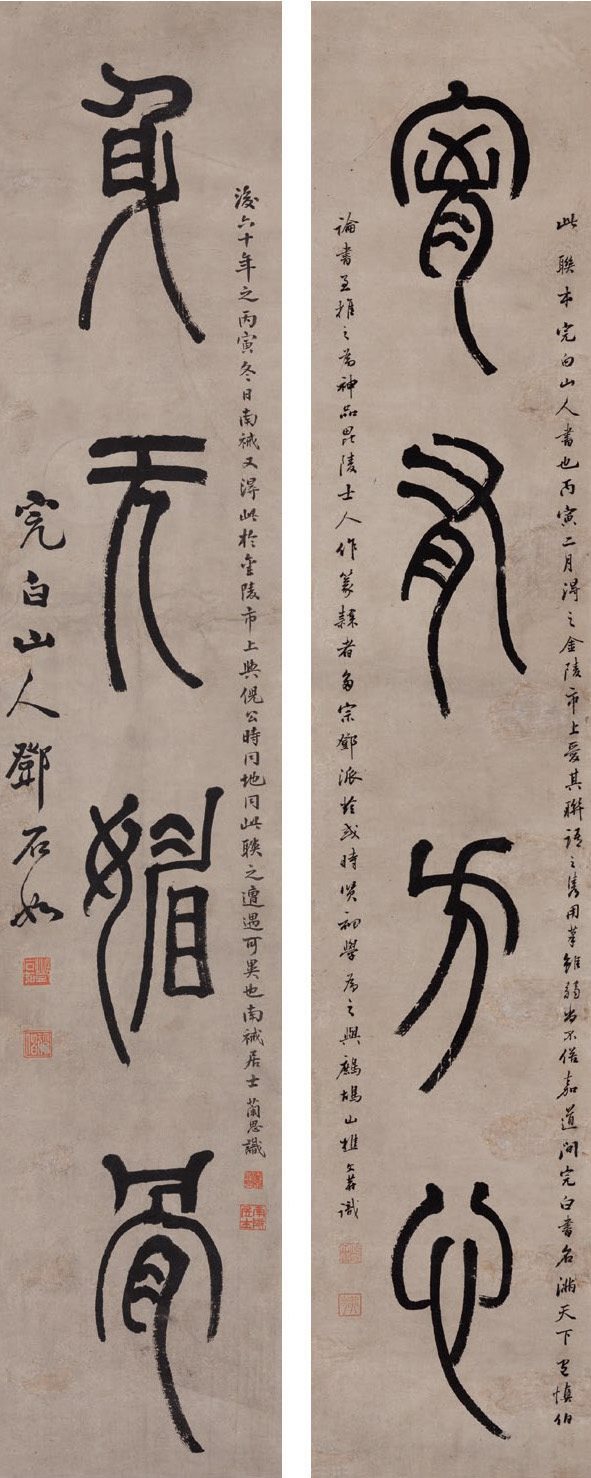 此聯本完白山人書也丙寅二月得之金陵市上愛其聯語之雋用筆雖弱尚不俗嘉道間完白書名滿天下包慎伯
胷有方心
論書至推之為神品毘陵士人作篆隸者多宗鄧派於或時初學為之與鷓鴣山樵識
後六十年之丙寅冬日南又得此於金陵市上與倪公時同地同此聯之遭遇可異也南居士蘭思識
身无媚骨
完白山人鄧石如